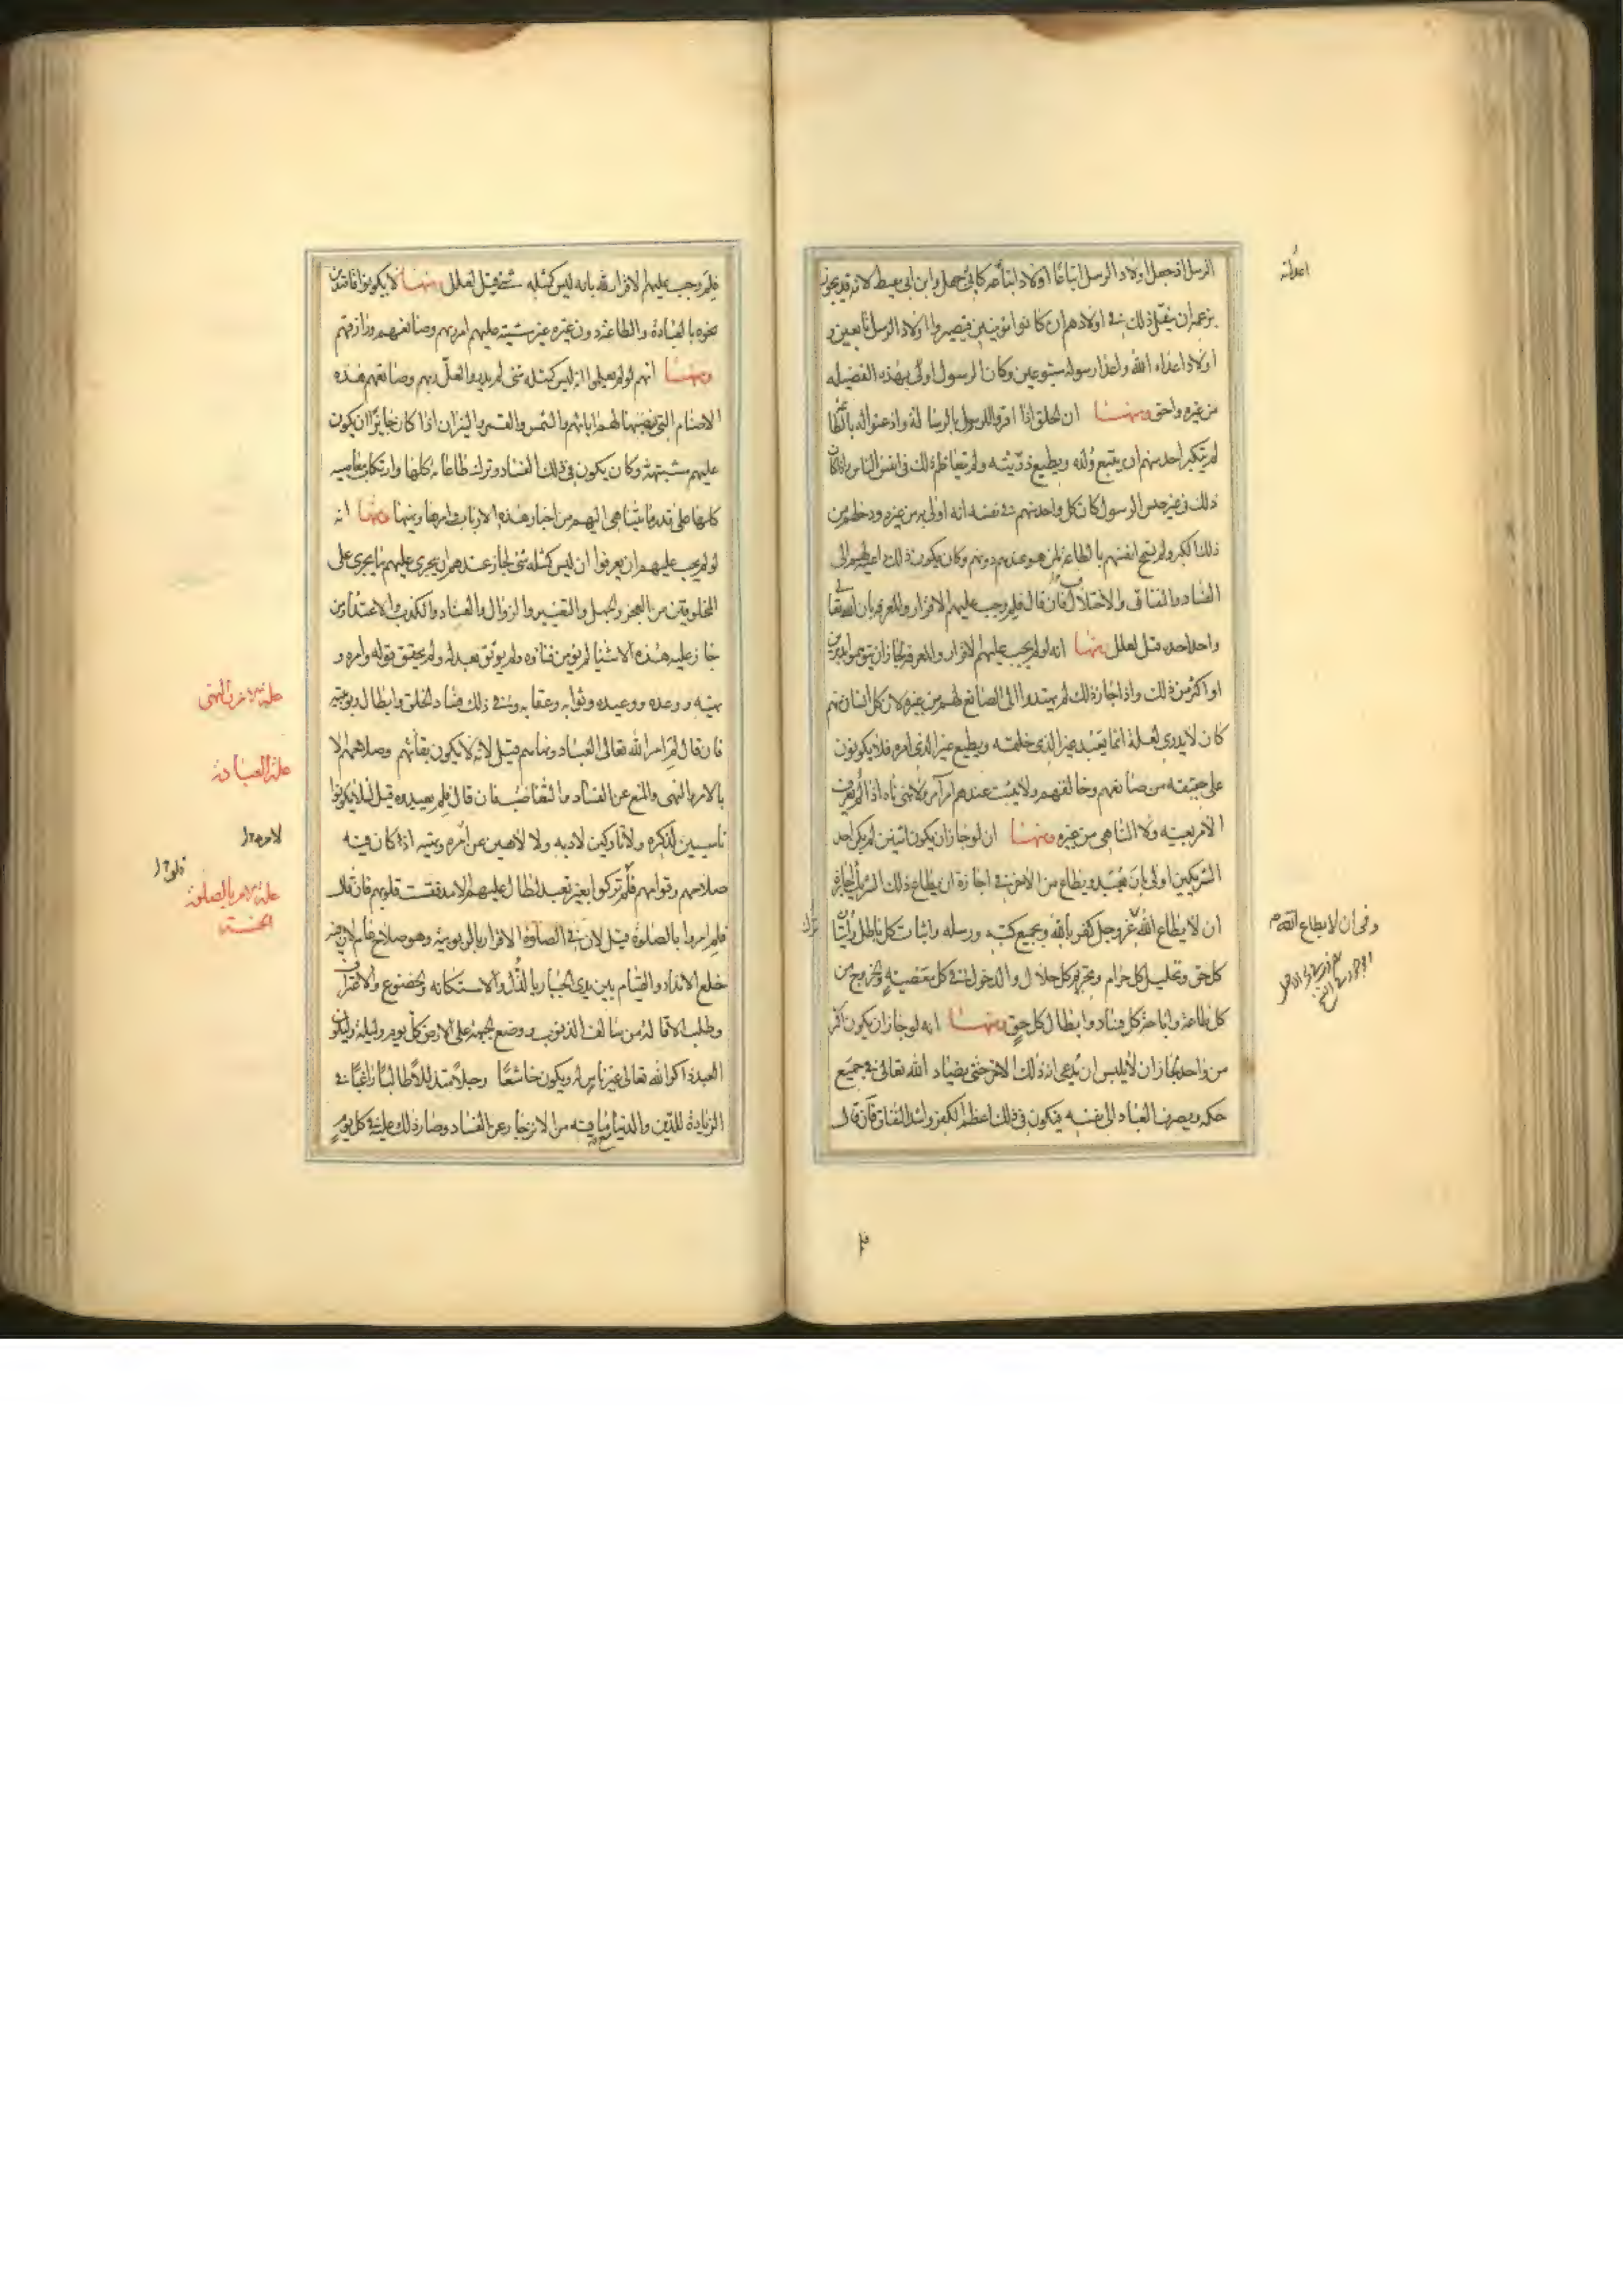 الرسل اذ جعل اولاد الرسل اتباعا لاولاد اعدائه كابي جهل وابن ابي معيط لانه قد يجوز
بزعمهم ان ينتقل ذلك في اولادهم ان كانوا مؤمنين فيصيروا اولاد الرسل تابعين و
اولاد اعداء الله واعداء رسوله متبوعين وكان الرسول اولى بهذه الفضيله
من غيره واحق ومنها ان الخلق اذا اقروا للرسول بالرسالة واذعنوا له بالطاعة
لم يتكبر احد منهم ان يتبع ولده ويطيع ذريته ولم يتعاظم ذلك في انفس الناس واذا كان
ذلك في غير جنس الرسول كان كل واحد منهم في نفسه انه اولى به من غيره ودخلهم من
ذلك الكبر ولم تسنح انفسهم بالطاعة لمن هو عندهم دونهم وكان يكون ذلك داعية لهم الى
الفساد والنفاق والاختلاف فان قال فلم وجب عليهم الاقرار والمعرفة بان الله تعالى
واحد احد قيل لعلل منها انه لو لم يجب عليهم الاقرار والمعرفة لجاز ان يتوهموا مدبرين
او اكثر من ذلك واذا جاز ذلك لم يهتدوا الى الصانع لهم من غيره لان كل انسان منهم
كان لا يدري لعله انما يعبد غير الذي خلقه ويطيع غير الذي امره فلا يكونون
على حقيقة من صانعهم وخالقهم ولا يثبت عندهم امر آمر ولا نهي ناه اذا لا يعرف
الامر بعينه ولا الناهي من غيره ومنها ان لو جاز ان يكون اثنين لم يكن احد
الشريكين اولى بان يعبد ويطاع من الاخر وفي اجازة ان يطاع ذلك الشريك اجازة
ان لا يطاع الله عز وجل كفر بالله وبجميع كتبه ورسله واثبات كل باطل وترك
كل حق وتحليل كل حرام وتحريم كل حلال والدخول في كل معصية والخروج من
كل طاعة واباحة كل فساد وابطال كل حق ومنها انه لو جاز ان يكون اكثر
من واحد لجاز لابليس ان يدعي انه ذلك الاخر حتى يضاد الله تعالى في جميع
حكمه ويصرف العباد الى نفسه فيكون في ذلك اعظم الكفر واشد النفاق فان قال
وفي ان لا يطاع الله
فلم
فلم وجب عليهم الاقرار لله بانه ليس كمثله شئ قيل لعلل منها لان يكونوا قاصدين
نحوه بالعبادة والطاعة دون غيره غير مشتبه عليهم امر ربهم وصانعهم ورازقهم
ومنها انهم لو لم يعلموا انه ليس كمثله شئ لم يدروا لعل ربهم وصانعهم هذه
الاصنام التي نصبتها لهم اباؤهم والشمس والقمر والنيران اذا كان جائزا ان يكون
عليهم مشتبهة وكان يكون في ذلك الفساد وترك طاعاته كلها وارتكاب معاصيه
كلها على قدر ما يتناهى اليهم من اخبار هذه الارباب وامرها ونهيها ومنها انه
لو لم يجب عليهم ان يعرفوا ان ليس كمثله شئ لجاز عندهم ان يجرى عليه ما يجري على
المخلوقين من العجز والجهل والتغيير والزوال والفناء والكذب والاعتداء ومن
جاز عليه هذه الاشياء لم يؤمن فناؤه ولم يوثق بعدله ولم يحقق قوله وامره و
نهيه ووعده ووعيده وثوابه وعقابه وفي ذلك فساد الخلق وابطال الربوبية
فان قال لم امر الله تعالى العباد ونهاهم قيل لانه لا يكون بقاؤهم وصلاحهم الا
بالامر والنهي والمنع عن الفساد والتغاصب فان قال فلم تعبدهم قيل لئلا يكونوا
ناسين لذكره ولا تاركين لادبه ولا لاهين عن امره ونهيه اذا كان فيه
صلاحهم وقوامهم فلو تركوا بغير تعبد لطال عليهم الامد فقست قلوبهم فان قال
فلم امروا بالصلوة قيل لان في الصلوة الاقرار بالربوبية وهو صلاح عام لان فيه
خلع الانداد والقيام بين يدي الجبار بالذل والاستكانه والخضوع والاعتراف
وطلب الاقالة من سالف الذنوب ووضع الجبهة على الارض كل يوم وليلة وليكون
العبد ذاكرا لله تعالى غير ناس له ويكون خاشعا وجلا متذللا طالبا راغبا في
الزيادة للدين والدنيا مع ما فيه من الانزجار عن الفساد وصار ذلك عليه في كل يوم
علة الامر والنهي
علة العبادة
علة الامر بالصلوة
الخمسة